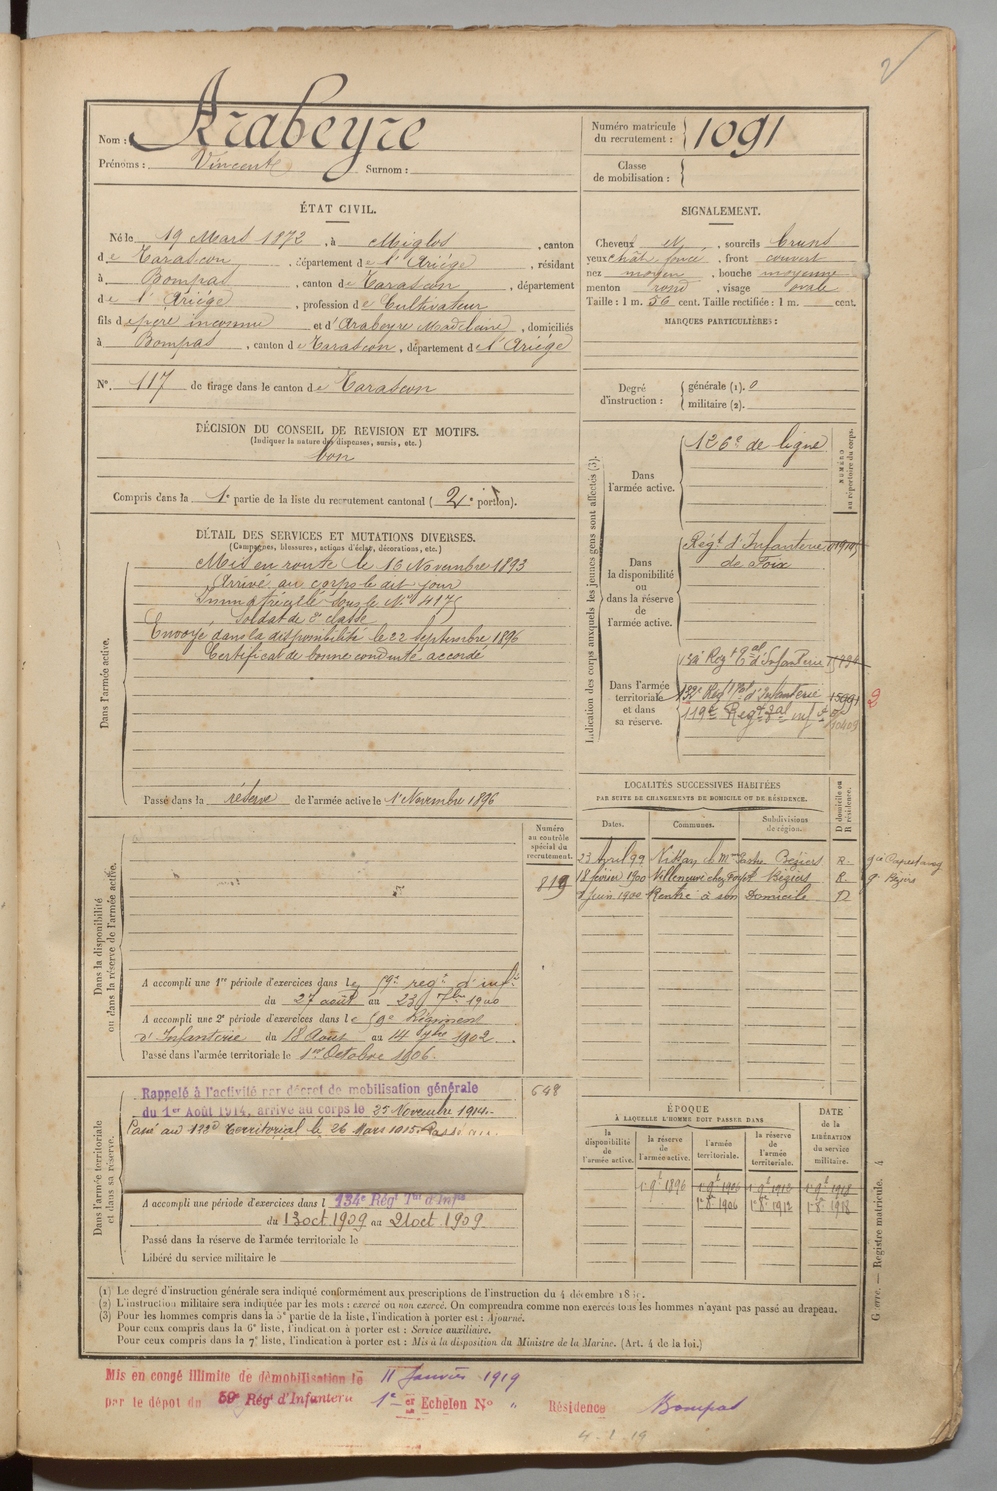 2
Nom : Arabeyre
Prénoms : Vincent Surnom :
Numéro matricule du recrutement : 1091
Classe de mobilisation :
ÉTAT CIVIL.
Né le 19 Mars 1872, à Miglos, canton
de Tarascon, département de l'Ariége, résidant
à Bompas, canton de Tarascon, département
de l'Ariége, profession de Cultivateur
fils de père inconnu et d'Arabeyre Madeleine, domiciliés
à Bompas, canton de Tarascon, département de l'Ariége
N° 117 de tirage dans le canton de Tarascon
SIGNALEMENT.
Cheveux N, sourcils bruns
yeux chât. foncé, front couvert
nez moyen, bouche moyenne
menton rond, visage ovale
Taille : 1 m. 56 cent. Taille rectifiée : 1 m. cent.
MARQUES PARTICULIÈRES :
Degré d'instruction : générale (1). 0
militaire (2).
DÉCISION DU CONSEIL DE REVISION ET MOTIFS.
(Indiquer la nature des dispenses, sursis, etc.)
bon
Compris dans la 1e partie de la liste du recrutement cantonal (2e portion).
DÉTAIL DES SERVICES ET MUTATIONS DIVERSES.
(Campagnes, blessures, actions d'éclat, décorations, etc.)
Dans l'armée active.
Mis en route le 16 Novembre 1893
Arrivé au corps le dit jour
Immatriculé sous le N° 4175
Soldat de 2e classe
Envoyé dans la disponibilité le 22 Septembre 1896
Certificat de bonne conduite accordé
Passé dans la réserve de l'armée active le 1 Novembre 1896
Indication des corps auxquels les jeunes gens sont affectés (3).
NUMÉRO au répertoire du corps.
Dans l'armée active.
126e de ligne
Dans la disponibilité ou dans la réserve de l'armée active.
Régt d'Infanterie
de Foix
Dans l'armée territoriale et dans sa réserve.
134 Regt Tal d'Infanterie
132e Regt Tal d'Infanterie 15991
119e Regt Tal inf
2
LOCALITÉS SUCCESSIVES HABITÉES
PAR SUITE DE CHANGEMENTS DE DOMICILE OU DE RÉSIDENCE.
Dates. Communes. Subdivisions de région. D domicile ou R résidence.
23 Avril 99 Béziers R.
18 février 1900 Villeneuve chez Béziers R. Béziers
1 Juin 1900 Rentré à son Domicile D
Dans la disponibilité ou dans la réserve de l'armée active.
Numéro au contrôle spécial du recrutement.
819
A accompli une 1re période d'exercices dans le 59e régt d'inf.
du 27 août au 23 7bre 1900
A accompli une 2e période d'exercices dans le 59e Régiment
d'Infanterie du 18 Août au 14 7bre 1902
Passé dans l'armée territoriale le 1er Octobre 1906.
Dans l'armée territoriale et dans sa réserve.
648
Rappelé à l'activité par décret de mobilisation générale
du 1er Août 1914, arrivé au corps le 25 Novembre 1914.
Passé au 132d territorial le 26 Mars 1915. Passé au
A accompli une période d'exercices dans l 134e Régt Tal d'Infie
du 13 oct 1909 au 21 oct 1909
Passé dans la réserve de l'armée territoriale le
Libéré du service militaire le
ÉPOQUE
À LAQUELLE L'HOMME DOIT PASSER DANS
la disponibilité de l'armée active. la réserve de l'armée active. l'armée territoriale. la réserve de l'armée territoriale.
DATE de la LIBÉRATION du service militaire.
1 9bre 1896 1 9bre 1906 1 9bre 1912 1 9bre 1918
1 8bre 1906 1 8bre 1912 1 8bre 1918
(1) Le degré d'instruction générale sera indiqué conformément aux prescriptions de l'instruction du 4 décembre 18
(2) L'instruction militaire sera indiquée par les mots : exercé ou non exercé. On comprendra comme non exercés tous les hommes n'ayant pas passé au drapeau.
(3) Pour les hommes compris dans la 5e partie de la liste, l'indication à porter est : Ajourné.
Pour ceux compris dans la 6e liste, l'indication à porter est : Service auxiliaire.
Pour ceux compris dans la 7e liste, l'indication à porter est : Mis à la disposition du Ministre de la Marine. (Art. 4 de la loi.)
Guerre. — Registre matricule. 4
Mis en congé illimité de démobilisation le 11 Janvier 1919
par le dépot du 59e Régt d'Infanterie 1er Echelon N° " Résidence Bompas
4-1-19